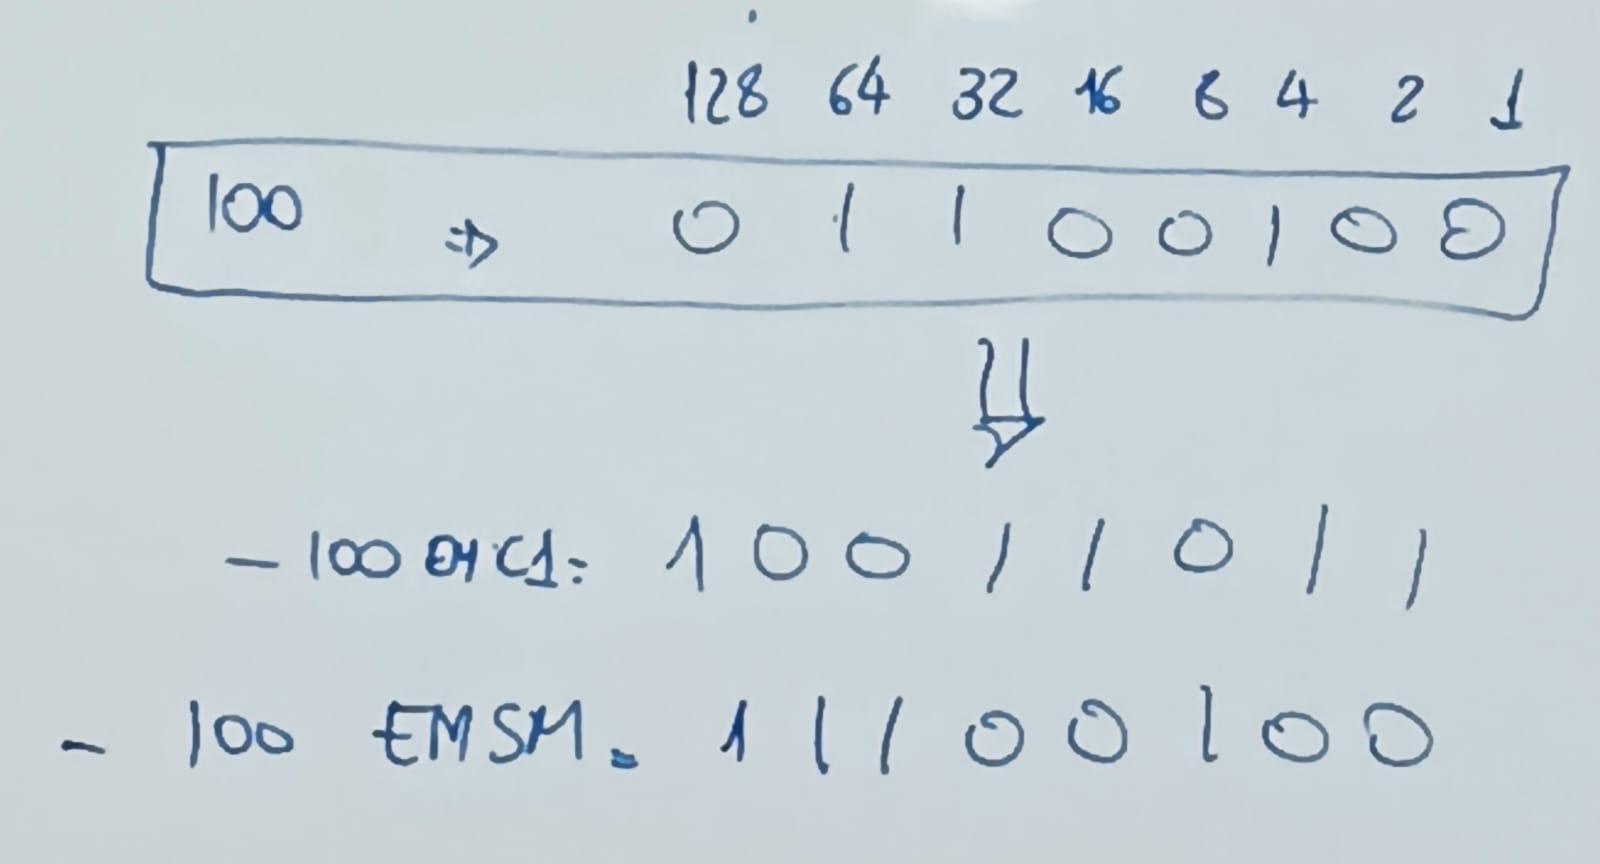 128 64 32 16 8 4 2 1
100 ⇒ 0 1 1 0 0 1 0 0
⇓
-100 en C1: 1 0 0 1 1 0 1 1
- 100 EM SM = 1 1 1 0 0 1 0 0